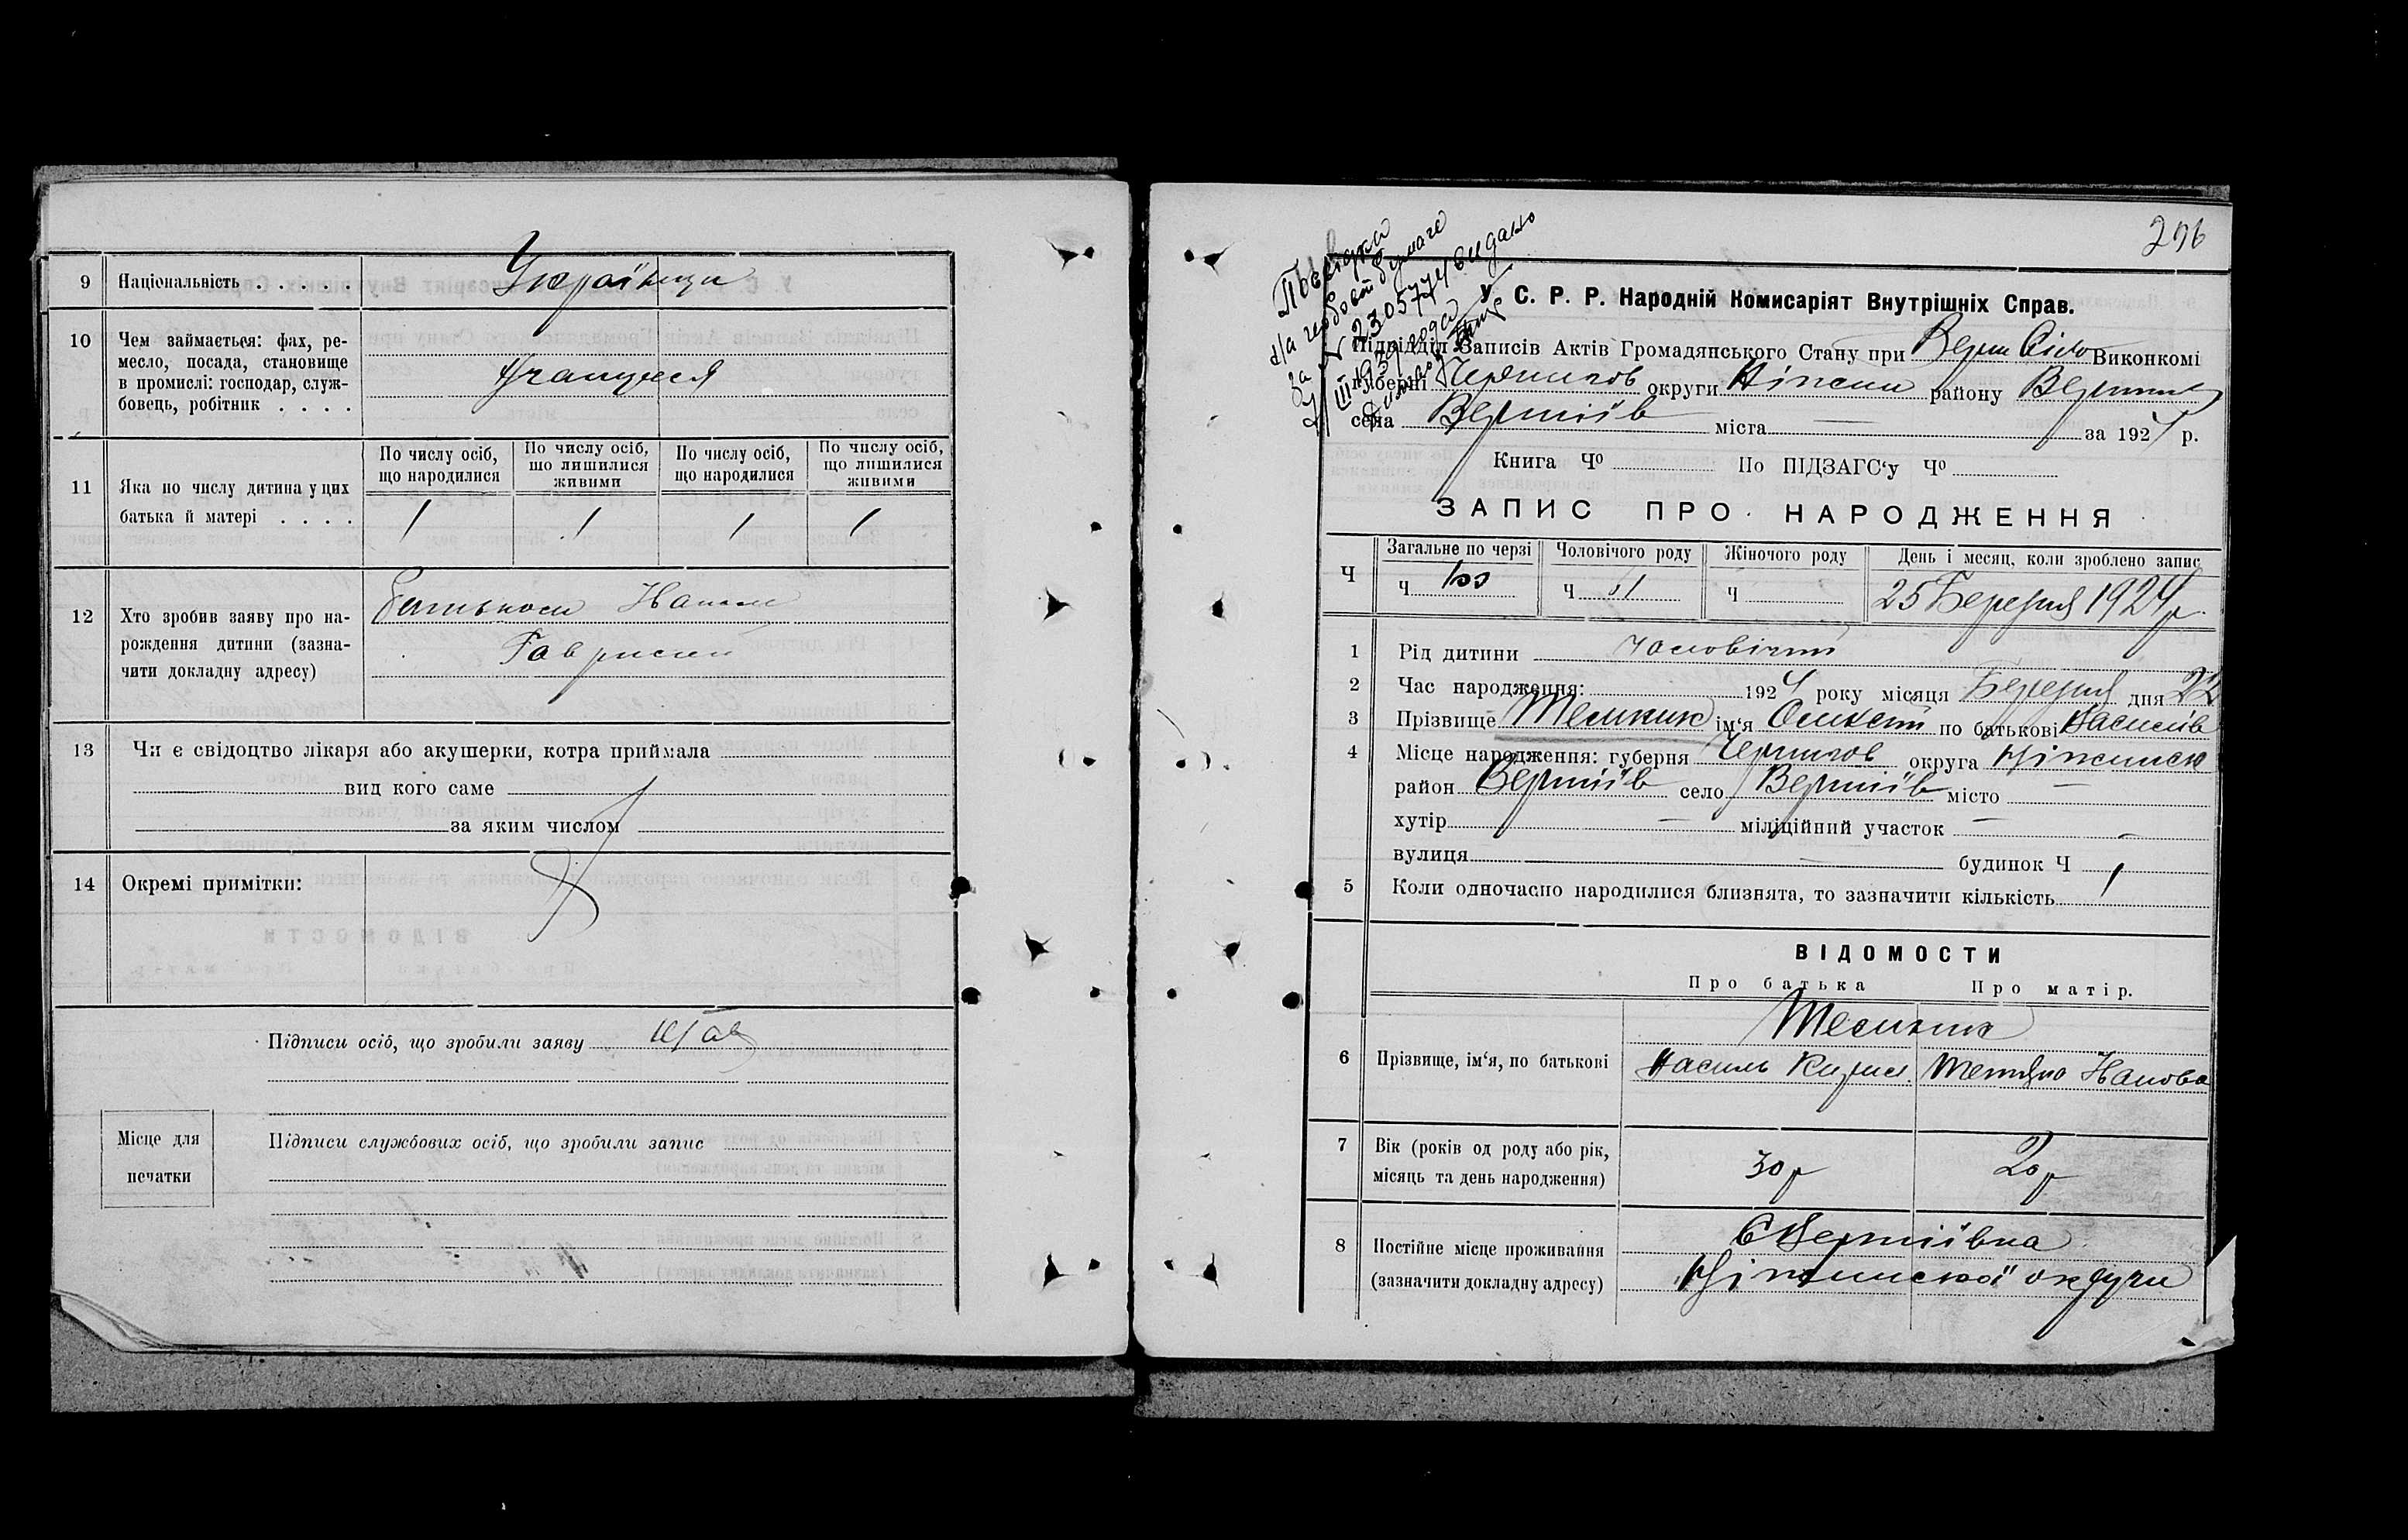 9 Національність . . . . . Українци
10 Чем займається: фах, ре-
месло, посада, становище
в промислі: господар, служ-
бовець, робітник . . . .
11 Яка по числу дитина у цих
батька й матері . . . .
По числу осіб, що народилися
По числу осіб, що лишилися живими
По числу осіб, що народилися
По числу осіб, що лишилися живими
1 1 1 1
12 Хто зробив заяву про на-
рождення дитини (зазна-
чити докладну адресу)
13 Чи є свідоцтво лікаря або акушерки, котра приймала
вид кого саме
за яким числом
14 Окремі примітки:
Підписи осіб, що зробили заяву
Місце для
печатки
Підписи службових осіб, що зробили запис
296
У. С. Р. Р. Народній Комисаріят Внутрішніх Справ.
Підвідділ Записів Актів Громадянського Стану при Виконкомі
губерні Чернигов округи Ніжин району
села Вертіїв міста — за 1924 р.
Книга Чо По ПІДЗАГС‘у Чо
ЗАПИС ПРО НАРОДЖЕННЯ
Ч
Загальне по черзі Чоловічого роду Жіночого роду День і месяц, коли зроблено запис
Ч 100 Ч 51 Ч 25 Березня 1924 р.
1 Рід дитини чоловічий
2 Час народження: 1924 року місяця Березня дня 22
3 Прізвище ім‘я Олексій по батькові Василів
4 Місце народження: губерня Чернигов округа
район Вертіїв село Вертіїв місто —
хутір — міліційний участок —
вулиця — будинок Ч
5 Коли одночасно народилися близнята, то зазначити кількість 1
ВІДОМОСТИ
Про батька Про матір.
6 Прізвище, ім‘я, по батькові
Василь Тетяна
7 Вік (років од роду або рік,
місяць та день народження)
30 р 20 р
8 Постійне місце проживання
(зазначити докладну адресу)
с Вертіївка
Ніжинської округи